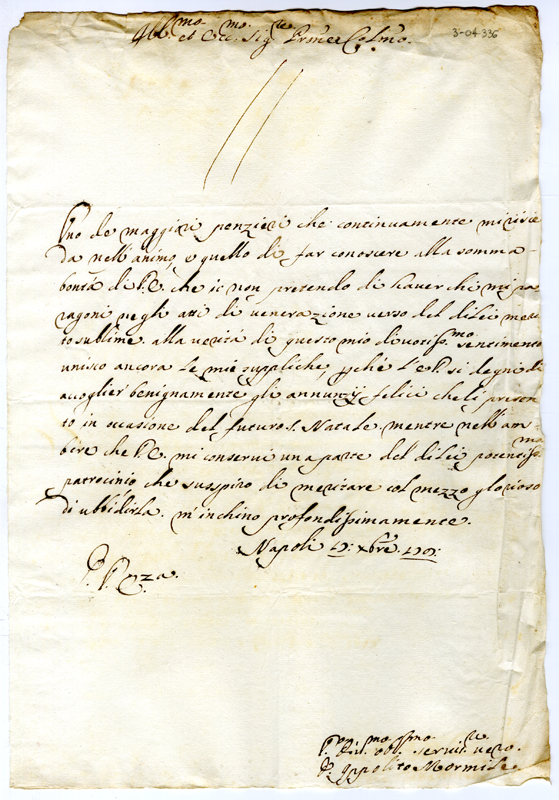 Ill.mo et Ecc.mo Sig.re P.rone Col.mo
3-04-336
Uno de maggiori penzieri che continuamente mi risie
da nell'animo è quello di far conoscere alla somma
bontà di V.E. che io non pretendo di haver chi mi pa
ragoni negli atti di venerazione verso del di lei meri
to sublime. alla verità di questo mio divotiss.mo sentimento
unisco ancora le mie suppliche, p̱chè l'E.V. si degni di
accoglier benignamente gli annunzij felici che li presen
to in occasione del futuro S. Natale. mentre nell'am
bire che V.E. mi conservi una parte del di lei potentiss.mo
patrocinio che suspiro di meritare col mezzo glorioso
di ubbidirla. m'inchino profondissimamente.
Napoli xbre
D. V. Ecza.
Hu.mo obb.mo servit.re vero
D. Ippolito Mormile